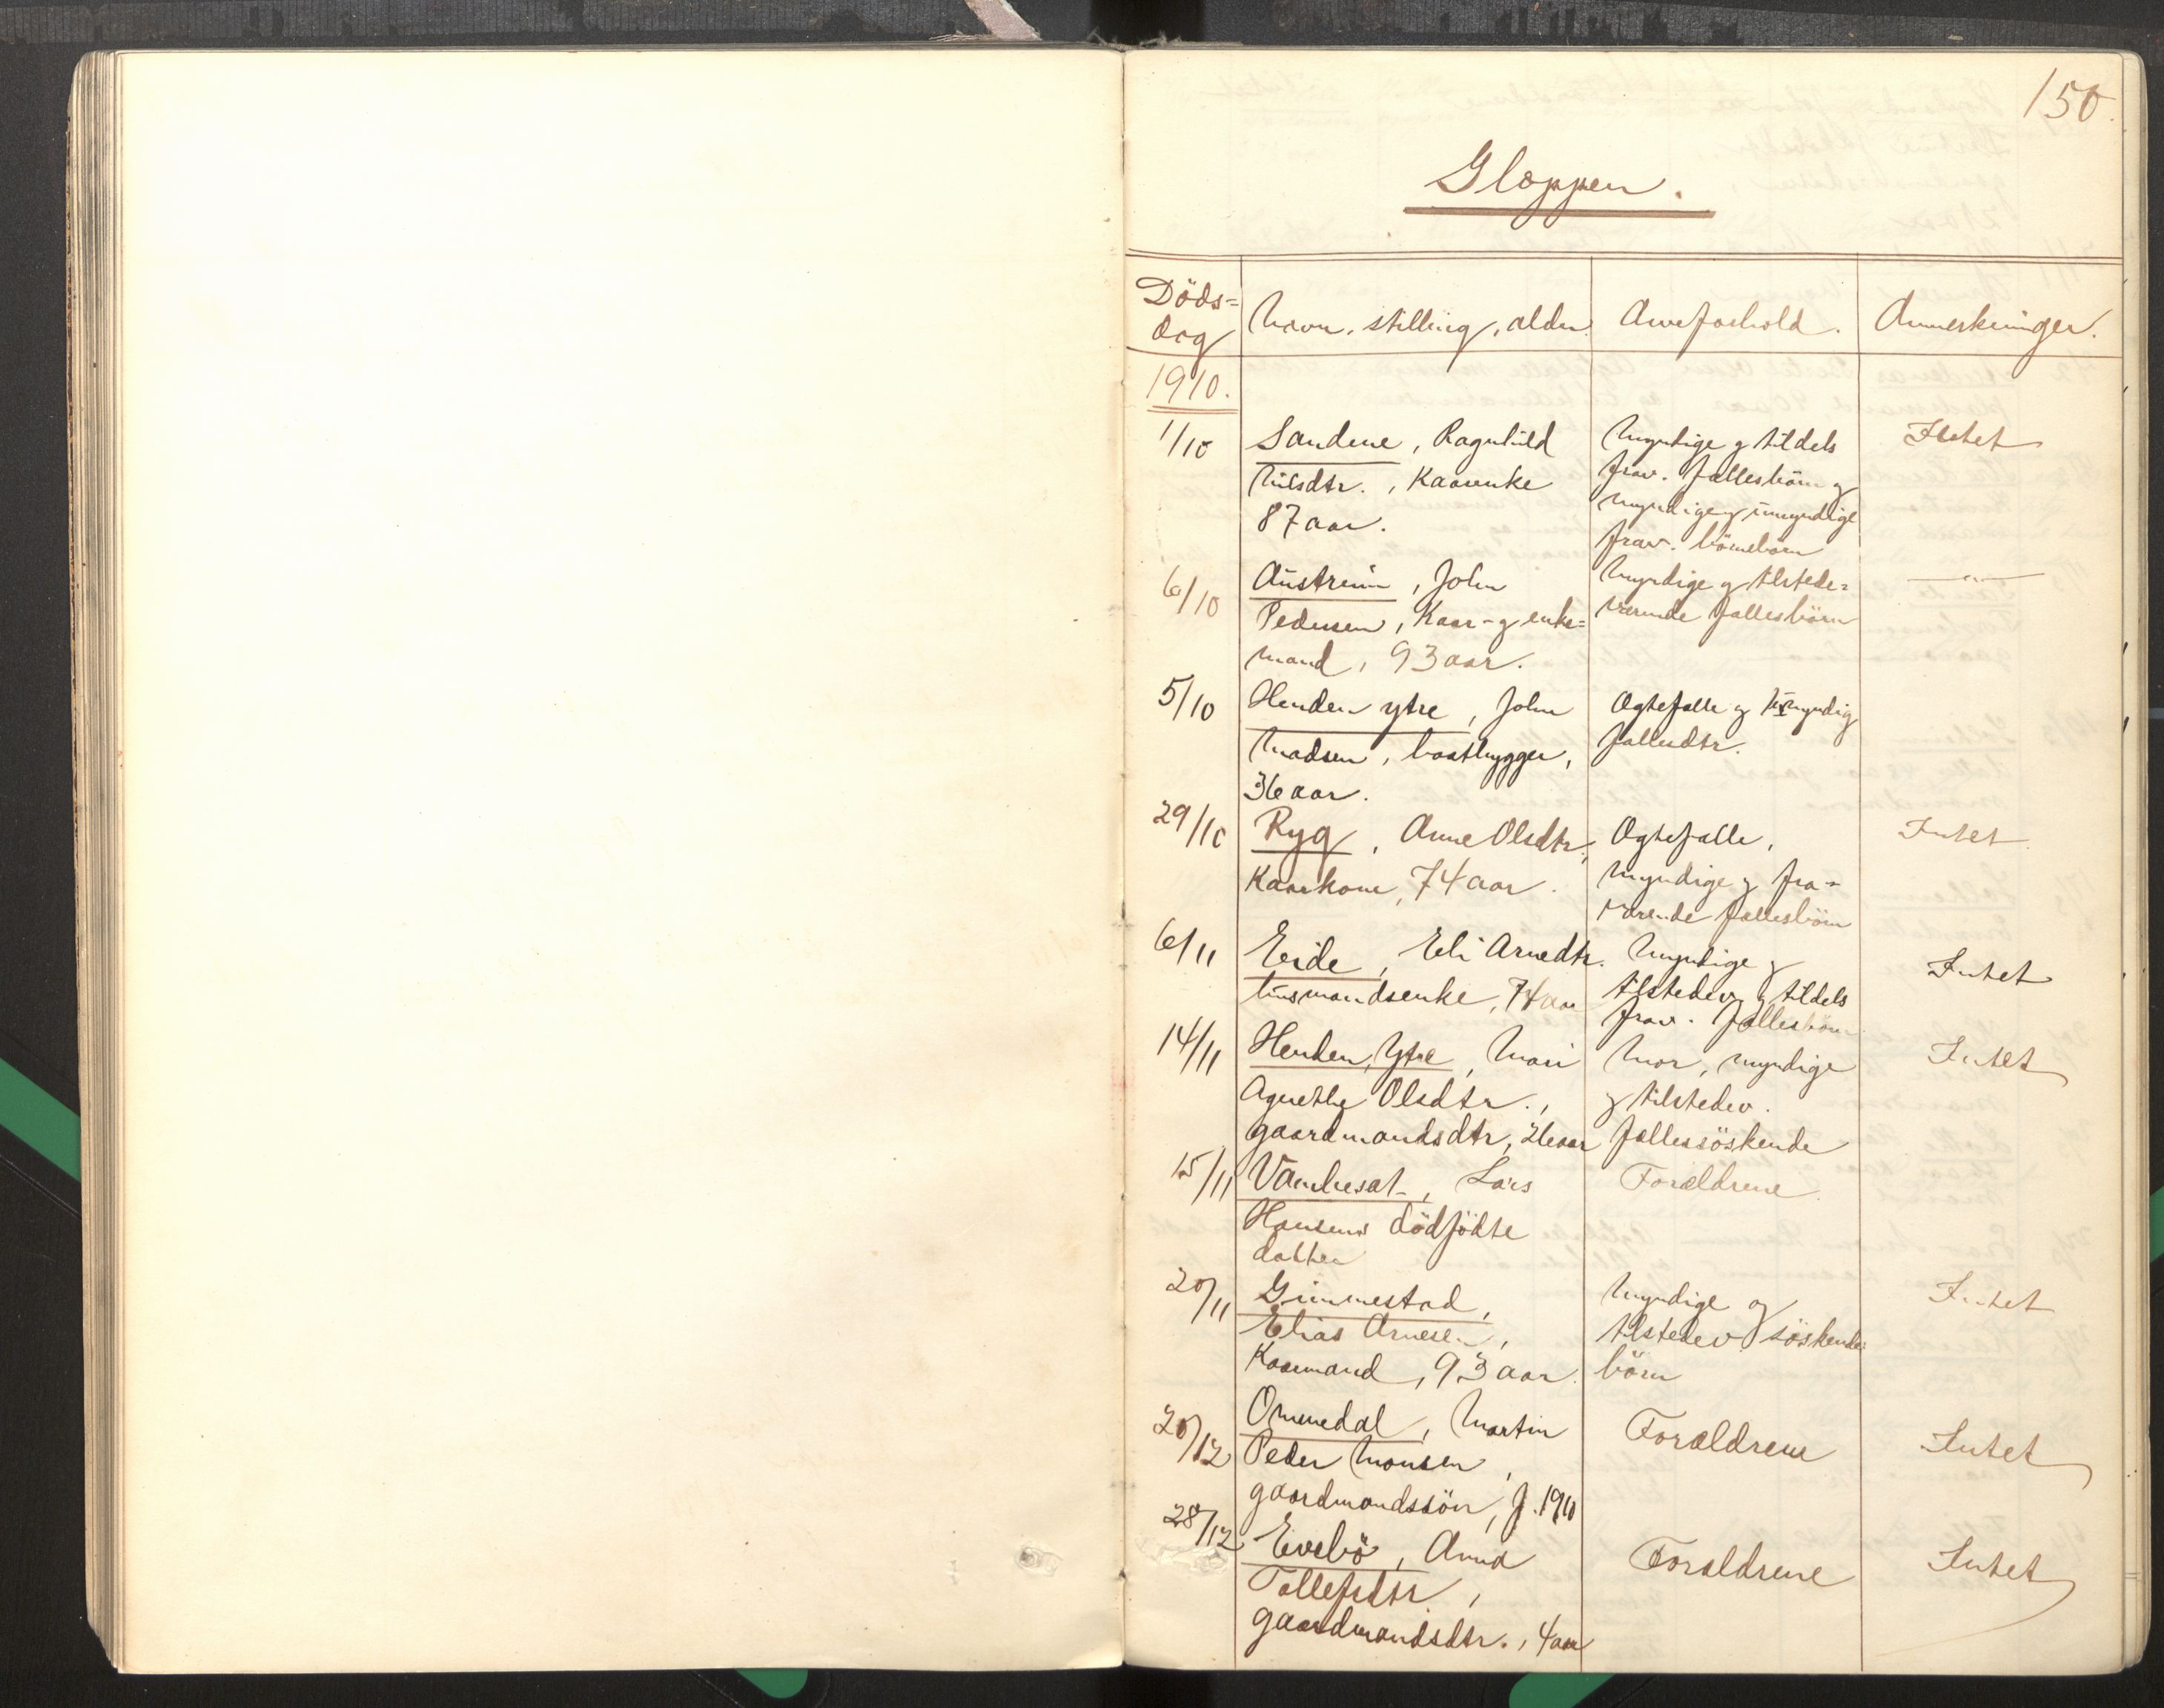 150.
Gloppen.
Döds=
dag
Navn, stilling, alder.
Arveforhold.
Anmerkninger.
1910.
1/10
Sandene, Ragnhild
Nilsdtr., Kaarenke
87 aar.
Myndige og tildels
frav. fællesbörn og
myndige og umyndige
frav. börnebörn
Intet
6/10
Austreim, John
Pedersen, Kaar- og enke=
mand, 93 aar.
Myndige og tilstede=
værende fællesbörn
—"—
5/10
Henden ytre, John
Madsen, baatbygger,
36 aar.
Ægtefælle og umyndig
fællesdtr.
29/10
Ryg, Anne Olsdtr.,
Kaarkone, 74 aar.
Ægtefælle,
myndige og fra=
værende fællesbörn
Intet
6/11
Eide, Eli Arnedtr.
husmandsenke, 74 aar
Myndige og
tilstedev. og tildels
frav. fællesbörn
Intet
14/11
Henden, Ytre, Mari
Agnethe Olsdtr.,
gaardmandsdtr, 26 aar
Mor, myndige
og tilstedev.
fællessöskende
Intet
15/11
Vambesat, Lars
Hansens dödfödte
datter
Forældrene.
20/11
Gimmestad,
Elias Arnesen,
Kaarmand, 93 aar.
Myndige og
tilstedev. söskende=
börn
Intet
20/12
Ommedal, Martin
Peder Monsen,
gaardmandssön, f. 1910
Forældrene
Intet
28/12
Evebö, Anna
Tollefsdtr,
gaardmandsdtr., 4 aar
Forældrene
Intet